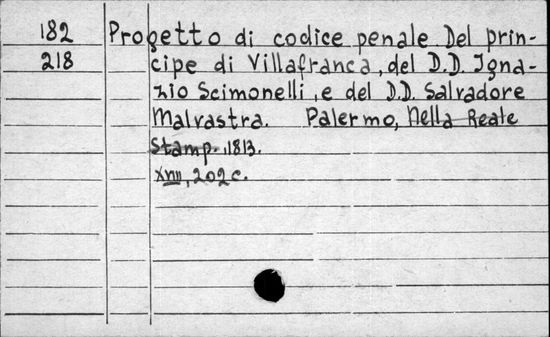 182 Progetto di codice penale. Del prin-
218 cipe di Villafranca, del D.D. Igna-
zio Scimonelli, e del D.D. Salvadore
Malvastra. Palermo, Nella Reale
Stamp. 1813.
XVIII, 202 c.